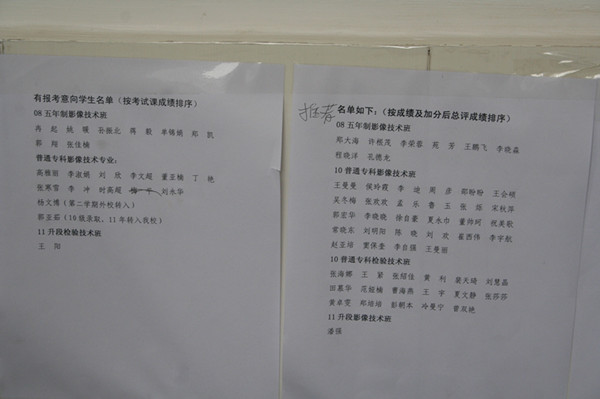 有报考意向学生名单（按考试课成绩排序）
08 五年制影像技术班
冉 起 姚 暖 孙振北 蒋 毅 单锡娟 郑 凯
郭 翔 张佳楠
普通专科影像技术专业：
高雅丽 李淑娟 刘 欢 李文超 董亚楠 丁 艳
张寒雪 李 冲 时高超 刘永华
杨文博（第二学期外校转入）
郭亚茹（10级录取，11年转入我校）
11 升段检验技术班
王 阳
推荐 名单如下：（按成绩及加分后总评成绩排序）
08 五年制影像技术班
郑大海 许根茂 李荣蓉 苑 芳 王鹏飞 李晓淼
程晓洋 孔德龙
10 普通专科影像技术班
王曼曼 侯玲霞 李 迪 周 彦 邵盼盼 王会硕
吴冬梅 张欢欢 孟 乐 鲁 玉 张 烁 宋秋萍
郭宏华 李晓晓 徐自豪 夏永巾 董帅珂 祝美歌
常晓东 刘明阳 陈 晓 刘 欢 崔西伟 李宇航
赵亚培 窦保奎 李自强 王曼丽
10 普通专科检验技术班
张海娜 王 箬 张绍佳 黄 利 庞天琦 刘慧磊
田慕华 范娅楠 曹海燕 王 宇 夏文静 张莎莎
黄卓雯 郑培培 彭朝丰 冷曼宁 曾双艳
11 升段影像技术班
潘强